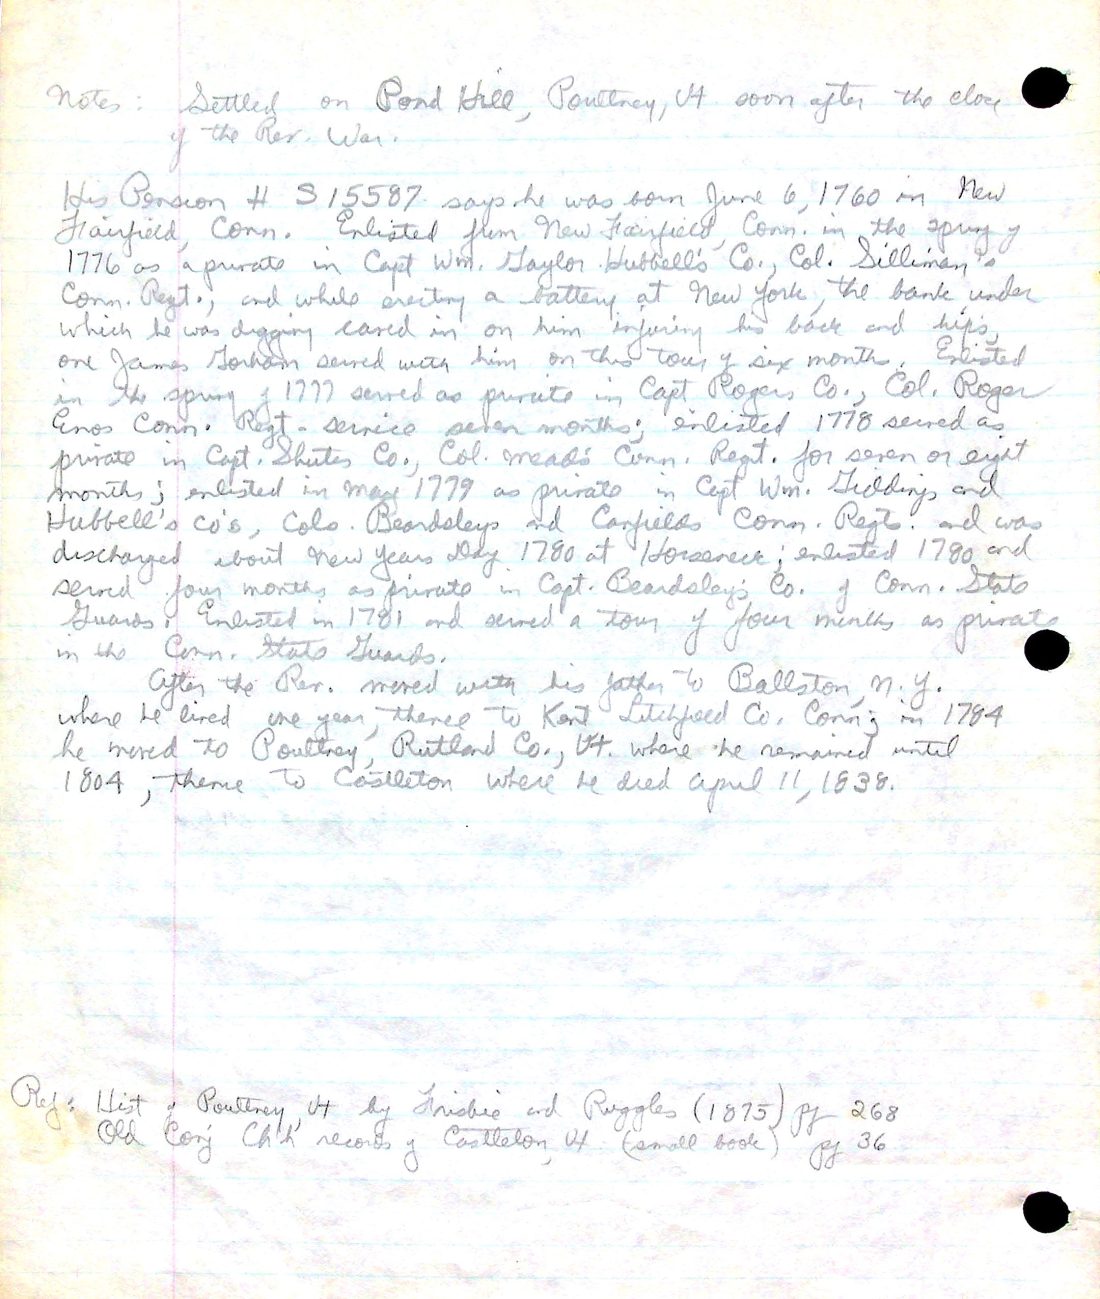 Notes: Settled on Pond Hill, Poultney, Vt soon after the close
of the Rev. War.
His Pension # S 15587 says he was born June 6, 1760 in New
Fairfield, Conn. Enlisted from New Fairfield, Conn. in the spring of
1776 as a private in Capt Wm. Gaylor Hubbell's Co., Col. Silliman's
Conn. Regt., and while erecting a battery at New York, the bank under
which he was digging caved in on him injuring his back and hips,
one James Gorham served with him on this tour of six months. Enlisted
in the spring of 1777 served as private in Capt Rogers Co., Col. Roger
Enos Conn. Regt - service seven months; enlisted 1778 served as
private in Capt. Shutes Co., Col. Mead's Conn. Regt. for seven or eight
months; enlisted in May 1779 as private in Capt Wm. Giddings and
Hubbell's Co's, Cols. Beardsleys and Canfields Conn. Regts. and was
discharged about New Years Day 1780 at Horseneck; enlisted 1780 and
served four months as private in Capt. Beardsley's Co. of Conn. State
Guards. Enlisted in 1781 and served a tour of four months as private
in the Conn. State Guards.
After the Rev. moved with his father to Ballston, N.Y.
where he lived one year, thence to Kent Litchfield Co. Conn; in 1784
he moved to Poultney, Rutland Co., Vt. where he remained until
1804, thence to Castleton where he died April 11, 1838.
Ref: Hist of Poultney, Vt by Frisbie and Ruggles (1875) pg 268
Old Cong Ch'h records of Castleton, Vt. (small book) pg 36